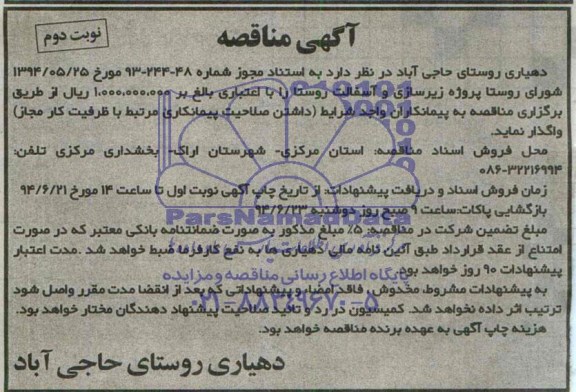 آگهی مناقصه
نوبت دوم
دهیاری روستای حاجی آباد در نظر دارد به استناد مجوز شماره ۴۸-۲۴۴-۹۳ مورخ ۱۳۹۴/۰۵/۲۵
شورای روستا پروژه زیرسازی و آسفالت روستا را با اعتباری بالغ بر ۱.۰۰۰.۰۰۰.۰۰۰ ریال از طریق
برگزاری مناقصه به پیمانکاران واجد شرایط (داشتن صلاحیت پیمانکاری مرتبط با ظرفیت کار مجاز)
واگذار نماید.
محل فروش اسناد مناقصه: استان مرکزی- شهرستان اراک- بخشداری مرکزی تلفن:
۰۸۶-۳۲۲۱۶۹۹۴
زمان فروش اسناد و دریافت پیشنهادات: از تاریخ چاپ آگهی نوبت اول تا ساعت ۱۴ مورخ ۹۴/۶/۲۱
بازگشایی پاکات: ساعت ۹ صبح روز دوشنبه ۹۴/۶/۲۳
ParsNamadData
مبلغ تضمین شرکت در مناقصه: ۵٪ مبلغ مذکور به صورت ضمانتنامه بانکی معتبر که در صورت
امتناع از عقد قرارداد طبق آئین نامه مالی دهیاری ها به نفع کارفرما ضبط خواهد شد .مدت اعتبار
پیشنهادات ۹۰ روز خواهد بود.
پایگاه اطلاع رسانی مناقصه و مزایده
به پیشنهادات مشروط، مخدوش، فاقد امضا و پیشنهاداتی که بعد از انقضا مدت مقرر واصل شود
۰۲۱-۸۸۳۴۹۶۷۰-۵
ترتیب اثر داده نخواهد شد. کمیسیون در رد و تائید صلاحیت پیشنهاد دهندگان مختار خواهد بود.
هزینه چاپ آگهی به عهده برنده مناقصه خواهد بود.
دهیاری روستای حاجی آباد